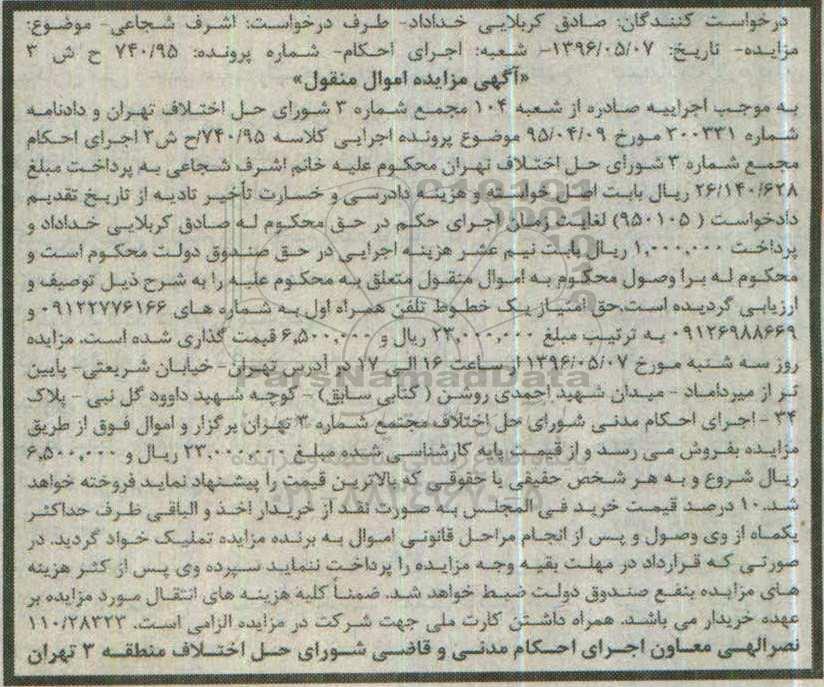 درخواست کنندگان: صادق کربلایی خداداد- طرف درخواست: اشرف شجاعی- موضوع:
مزایده- تاریخ: ۱۳۹۶/۰۵/۰۷- شعبه: اجرای احکام- شماره پرونده: ۷۴۰/۹۵ ح ش ۳
«آگهی مزایده اموال منقول»
به موجب اجراییه صادره از شعبه ۱۰۴ مجمع شماره ۳ شورای حل اختلاف تهران و دادنامه
شماره ۲۰۰۳۳۱ مورخ ۹۵/۰۴/۰۹ موضوع پرونده اجرایی کلاسه ۷۴۰/۹۵/ح ش۳ اجرای احکام
مجمع شماره ۳ شورای حل اختلاف تهران محکوم علیه خانم اشرف شجاعی به پرداخت مبلغ
۲۶/۱۴۰/۶۲۸ ریال بابت اصل خواسته و هزینه دادرسی و خسارت تأخیر تادیه از تاریخ تقدیم
دادخواست ( ۹۵۰۱۰۵) لغایت زمان اجرای حکم در حق محکوم له صادق کربلایی خداداد و
پرداخت ۱,۰۰۰,۰۰۰ ریال بابت نیم عشر هزینه اجرایی در حق صندوق دولت محکوم است و
محکوم له برا وصول محکوم به اموال منقول متعلق به محکوم علیه را به شرح ذیل توصیف و
ارزیابی گردیده است.حق امتیاز یک خطوط تلفن همراه اول به شماره های ۰۹۱۲۲۷۷۶۱۶۶ و
۰۹۱۲۶۹۸۸۶۶۹ به ترتیب مبلغ ۲۳,۰۰۰,۰۰۰ ریال و ۶,۵۰۰,۰۰۰ قیمت گذاری شده است. مزایده
روز سه شنبه مورخ ۱۳۹۶/۰۵/۰۷ از ساعت ۱۶ الی ۱۷ در آدرس تهران- خیابان شریعتی- پایین
تر از میرداماد - میدان شهید احمدی روشن ( کتابی سابق) - کوچه شهید داوود گل نبی - پلاک
۳۴ - اجرای احکام مدنی شورای حل اختلاف مجتمع شماره ۳ تهران برگزار و اموال فوق از طریق
مزایده بفروش می رسد و از قیمت پایه کارشناسی شده مبلغ ۲۳,۰۰۰,۰۰۰ ریال و ۶,۵۰۰,۰۰۰
ریال شروع و به هر شخص حقیقی یا حقوقی که بالاترین قیمت را پیشنهاد نماید فروخته خواهد
شد.۱۰ درصد قیمت خرید فی المجلس به صورت نقد از خریدار اخذ و الباقی ظرف حداکثر
یکماه از وی وصول و پس از انجام مراحل قانونی اموال به برنده مزایده تملیک خواد گردید. در
صورتی که قرارداد در مهلت بقیه وجه مزایده را پرداخت ننماید سپرده وی پس از کثر هزینه
های مزایده بنفع صندوق دولت ضبط خواهد شد. ضمناً کلیه هزینه های انتقال مورد مزایده بر
عهده خریدار می باشد. همراه داشتن کارت ملی جهت شرکت در مزایده الزامی است. ۱۱۰/۲۸۳۲۳
نصرالهی معاون اجرای احکام مدنی و قاضی شورای حل اختلاف منطقه ۳ تهران
ParsNamadData